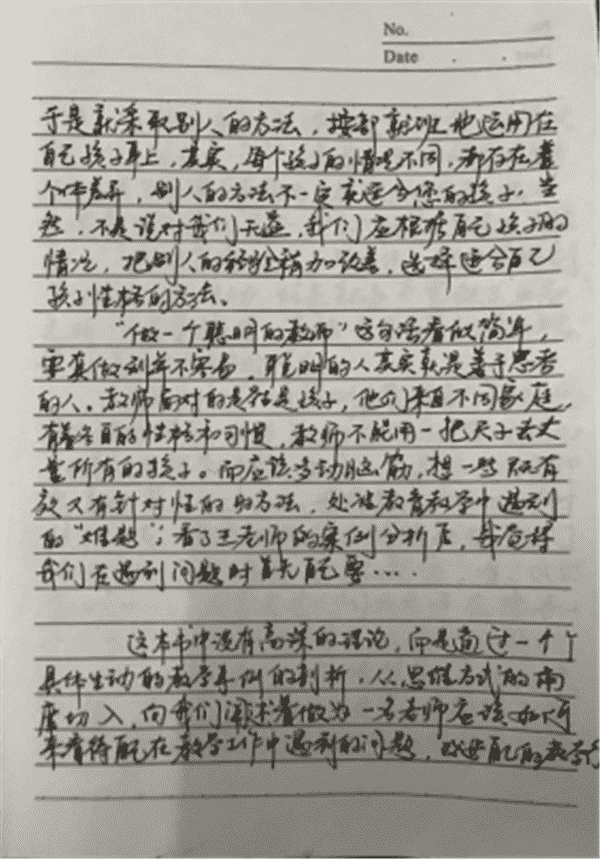 No.
Date
于是就采取别人的方法，按部就班地运用在
自己孩子身上，其实，每个孩子的情况不同，都存在着
个体差异，别人的方法不一定就适合您的孩子。当
然，不是说对我们无益，我们应根据自己孩子的
情况，把别人的经验稍加改善，选择适合自己
孩子性格的方法。
“做一个聪明的教师”这句话看似简单，
要真做到并不容易，聪明的人其实就是善于思考
的人。教师面对的是孩子，他们来自不同家庭，
有着各自的性格和习惯，教师不能用一把尺子去丈
量所有的孩子。而应该多动脑筋，想一些既有
效又有针对性的方法，处理教育教学中遇到
的“难题”；看了王老师的案例分析后，我觉得
我们在遇到问题时首先自己要....
这本书中没有高深的理论，而是通过一个个
具体生动的教学事例的剖析，从思维方式的角
度切入，向我们阐述着做为一名老师应该如何
来看待自己在教学工作中遇到的问题，自己的教学行